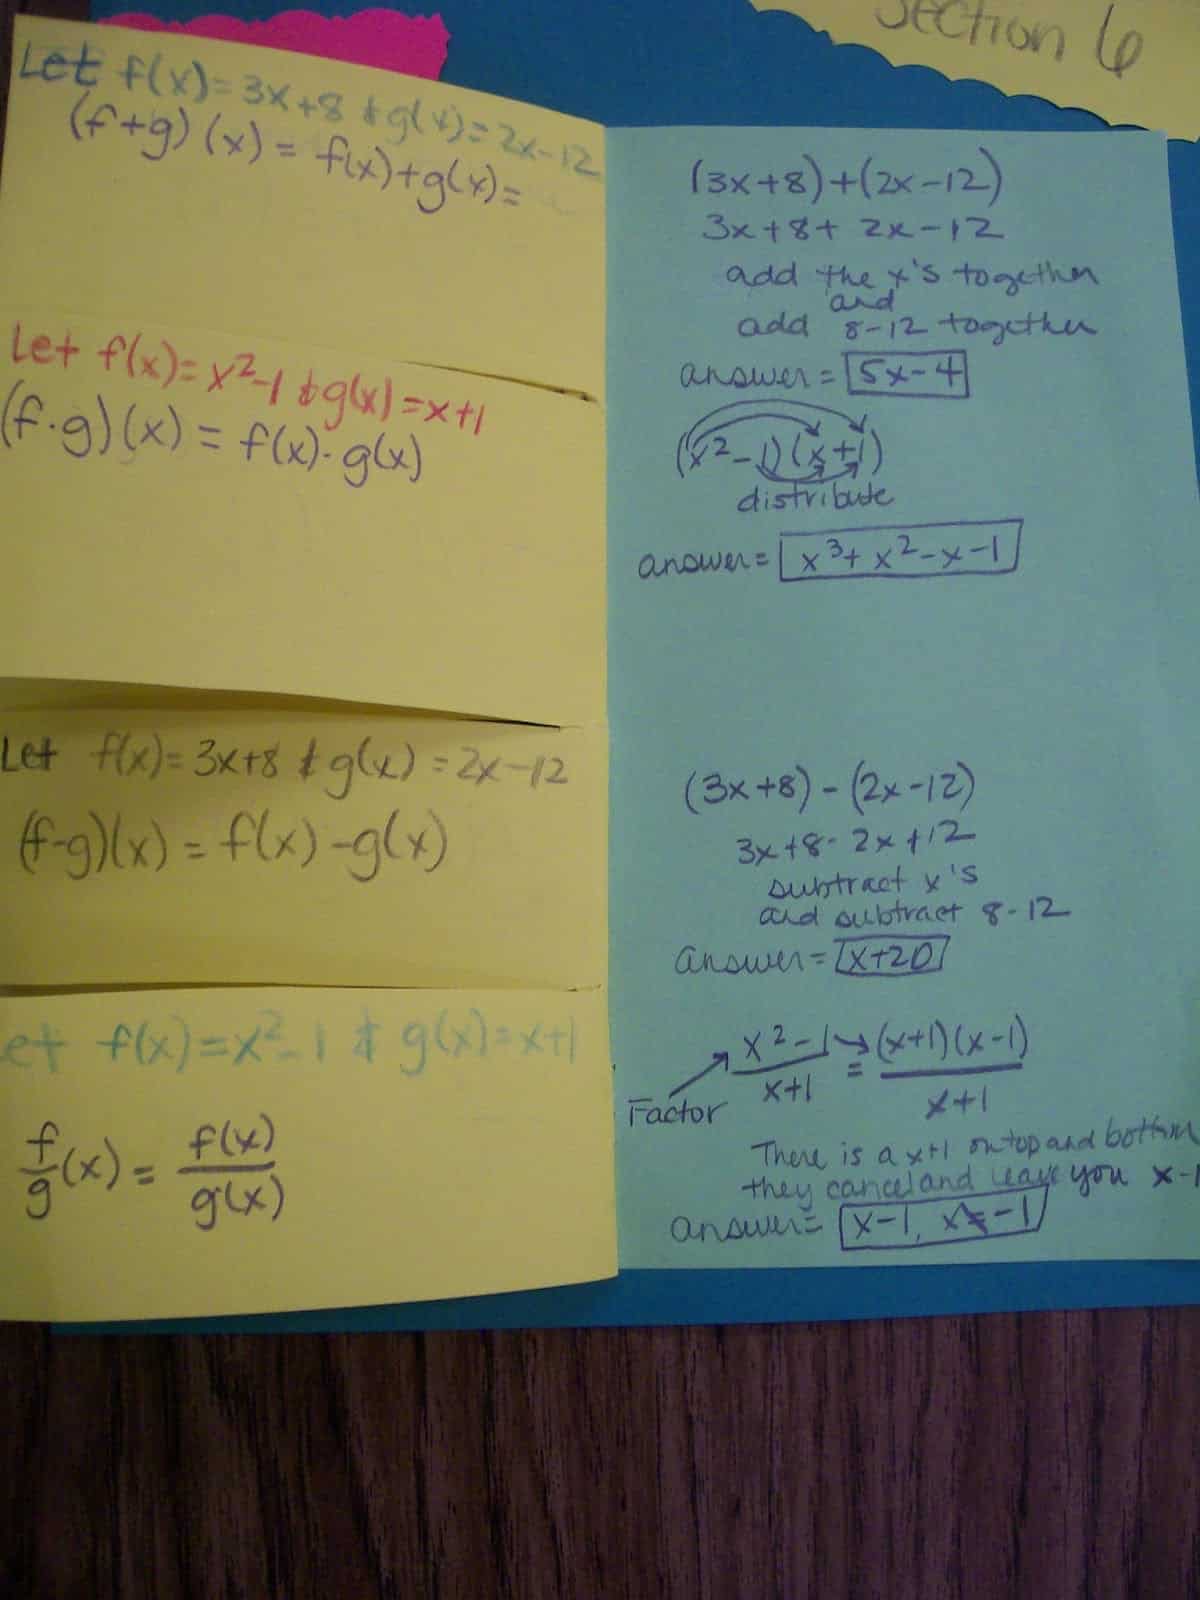 Section 6
Let f(x)=3x+8 & g(x)=2x-12
(f+g)(x) = f(x)+g(x)=
(3x+8)+(2x-12)
3x+8+ 2x-12
add the x's together
and
add 8-12 together
answer= 5x-4
Let f(x)=x²-1 & g(x)=x+1
(f·g)(x) = f(x)·g(x)
(x²-1)(x+1)
distribute
answer= x³+x²-x-1
Let f(x)=3x+8 & g(x)=2x-12
(f-g)(x) = f(x)-g(x)
(3x+8)-(2x-12)
3x+8-2x+12
subtract x's
and subtract 8-12
answer= x+20
et f(x)=x²-1 & g(x)=x+1
f/g(x) = f(x)/g(x)
x²-1/x+1 = (x+1)(x-1)/x+1
Factor
There is a x+1 on top and bottom
they cancel and leave you x-1
answer= x-1, x≠-1